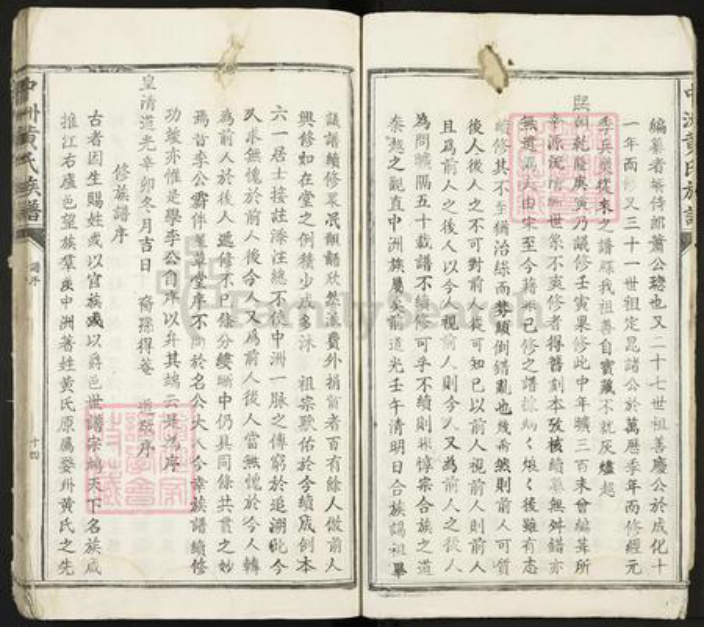 中洲黃氏族譜
編纂者兵侍郎蕭公聰也又二十七世祖善慶公於成化十
一年而修又三十一世祖定昆諸公於萬曆季年而修經元
季兵燹從來之譜牒我祖善自寶藏不就灰爐越
熙朝乾隆庚寅乃議修壬寅果修此中年曠三百未曾編葺所
幸源流世系不爽修者得舊刻本攷核續纂無舛錯亦
無遺漏大由宋至今藉非已修之譜據後雖有志
續修其不至猶治絲而棼顛倒錯亂也幾希然則前人可質
後人後人之不可對前人從可知已以前人視前人則前人
且為前人之後人以今人視前人則今人又為前人之後人
為問曠隔五十載譜不續修可乎不續則非惇宗合族之道
秦越之觀直中洲族屬矣前道光壬午清明日合族謁祖舉
議譜續修眾咸翩翩欣然派費外捐貲者百有餘人倣前人
興修如在堂之例積少成多沐 祖宗默佑於今續成創本
六一居士接註添注總不依中洲一脈之傳窮於追溯此今
又求無愧於前人後今人又為前人後人當無愧於今人轉
為前人於後人遞修不已條分縷晰中仍具同條共貫之妙
焉昔李公霽伴草堂序不斷於名公大人今幸族譜續修
功竣亦惟是學李公自序以弁其端云是為序
皇清道光辛卯冬月吉日 裔孫得菴 遜敬序
修族譜序
古者因生賜姓或以官族或以爵邑世譜宗綱天下名族咸
推江右廬邑望族羣及中洲著姓黃氏原屬婺州黃氏之先
中洲黃氏族譜
譜序
十四
FamilySearch